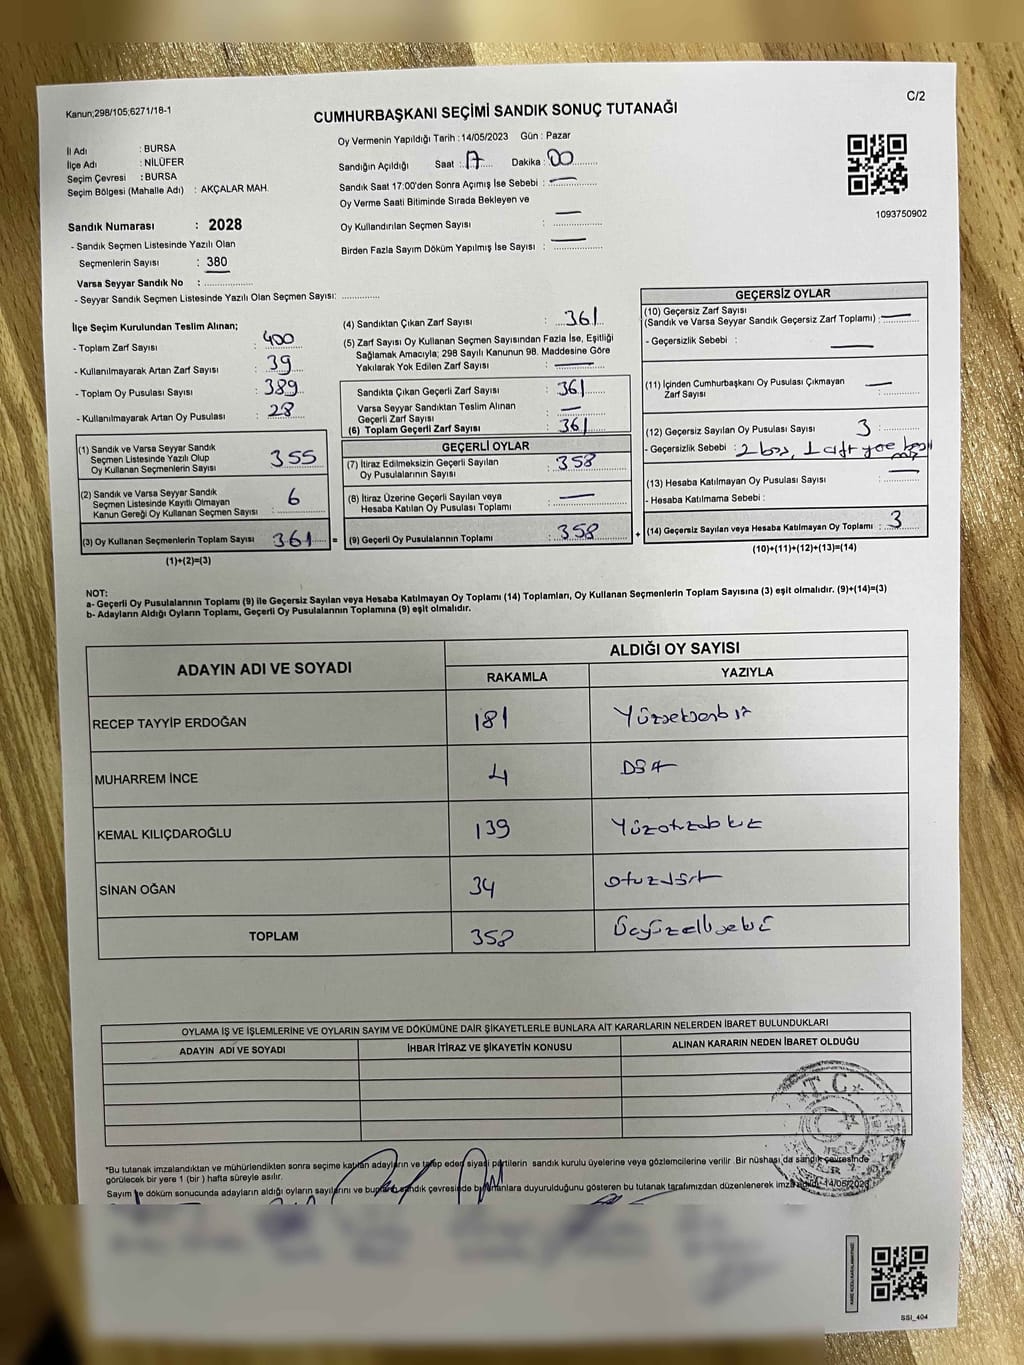 Kanun;298/105;6271/18-1
C/2
CUMHURBAŞKANI SEÇİMİ SANDIK SONUÇ TUTANAĞI
İl Adı : BURSA
İlçe Adı : NİLÜFER
Seçim Çevresi : BURSA
Seçim Bölgesi (Mahalle Adı) : AKÇALAR MAH.
Sandık Numarası : 2028
- Sandık Seçmen Listesinde Yazılı Olan
Seçmenlerin Sayısı : 380
Varsa Seyyar Sandık No : ................
- Seyyar Sandık Seçmen Listesinde Yazılı Olan Seçmen Sayısı: .............
Oy Vermenin Yapıldığı Tarih : 14/05/2023 Gün : Pazar
Sandığın Açıldığı Saat : 17 Dakika : 00
Sandık Saat 17:00'den Sonra Açımış İse Sebebi : —
Oy Verme Saati Bitiminde Sırada Bekleyen ve
Oy Kullandırılan Seçmen Sayısı : —
Birden Fazla Sayım Döküm Yapılmış İse Sayısı : —
1093750902
İlçe Seçim Kurulundan Teslim Alınan;
- Toplam Zarf Sayısı : 400
- Kullanılmayarak Artan Zarf Sayısı : 39
- Toplam Oy Pusulası Sayısı : 389
- Kullanılmayarak Artan Oy Pusulası : 28
(1) Sandık ve Varsa Seyyar Sandık
Seçmen Listesinde Yazılı Olup
Oy Kullanan Seçmenlerin Sayısı : 355
(2) Sandık ve Varsa Seyyar Sandık
Seçmen Listesinde Kayıtlı Olmayan
Kanun Gereği Oy Kullanan Seçmen Sayısı : 6
(3) Oy Kullanan Seçmenlerin Toplam Sayısı : 361
(1)+(2)=(3)
(4) Sandıktan Çıkan Zarf Sayısı : 361
(5) Zarf Sayısı Oy Kullanan Seçmen Sayısından Fazla İse, Eşitliği
Sağlamak Amacıyla; 298 Sayılı Kanunun 98. Maddesine Göre
Yakılarak Yok Edilen Zarf Sayısı : —
Sandıkta Çıkan Geçerli Zarf Sayısı : 361
Varsa Seyyar Sandıktan Teslim Alınan
Geçerli Zarf Sayısı : —
(6) Toplam Geçerli Zarf Sayısı : 361
=
GEÇERLİ OYLAR
(7) İtiraz Edilmeksizin Geçerli Sayılan
Oy Pusulalarının Sayısı : 358
(8) İtiraz Üzerine Geçerli Sayılan veya
Hesaba Katılan Oy Pusulası Toplamı : —
(9) Geçerli Oy Pusulalarının Toplamı : 358
+
GEÇERSİZ OYLAR
(10) Geçersiz Zarf Sayısı
(Sandık ve Varsa Seyyar Sandık Geçersiz Zarf Toplamı) : —
- Geçersizlik Sebebi : —
(11) İçinden Cumhurbaşkanı Oy Pusulası Çıkmayan
Zarf Sayısı : —
(12) Geçersiz Oy Pusulası Sayısı : 3
- Geçersizlik Sebebi : 2 boş, 1 çift
(13) Hesaba Katılmayan Oy Pusulası Sayısı : —
- Hesaba Katılmama Sebebi :
(14) Geçersiz Sayılan veya Hesaba Katılmayan Oy Toplamı : 3
(10)+(11)+(12)+(13)=(14)
NOT:
a- Geçerli Oy Pusulalarının Toplamı (9) ile Geçersiz Sayılan veya Hesaba Katılmayan Oy Toplamı (14) Toplamları, Oy Kullanan Seçmenlerin Toplam Sayısına (3) eşit olmalıdır. (9)+(14)=(3)
b- Adayların Aldığı Oyların Toplamı, Geçerli Oy Pusulalarının Toplamına (9) eşit olmalıdır.
ADAYIN ADI VE SOYADI
ALDIĞI OY SAYISI
RAKAMLA YAZIYLA
RECEP TAYYİP ERDOĞAN 181 Yüzseksenbir
MUHARREM İNCE 4 Dört
KEMAL KILIÇDAROĞLU 139 Yüzotuzdokuz
SİNAN OĞAN 34 otuzdört
TOPLAM 358 Üçyüzellisekiz
OYLAMA İŞ VE İŞLEMLERİNE VE OYLARIN SAYIM VE DÖKÜMÜNE DAİR ŞİKAYETLERLE BUNLARA AİT KARARLARIN NELERDEN İBARET BULUNDUKLARI
ADAYIN ADI VE SOYADI İHBAR İTİRAZ VE ŞİKAYETİN KONUSU ALINAN KARARIN NEDEN İBARET OLDUĞU
T.C.
*Bu tutanak imzalandıktan ve mühürlendikten sonra seçime katılan adayların ve talep eden siyasi partilerin sandık kurulu üyelerine veya gözlemcilerine verilir. Bir nüshası da sandık çevresinde
görülecek bir yere 1 (bir ) hafta süreyle asılır.
Sayım ve döküm sonucunda adayların aldığı oyların sayılarını ve bunların sandık çevresinde bulunanlara duyurulduğunu gösteren bu tutanak tarafımızdan düzenlenerek imza edildi. 14/05/2023
SSI_404